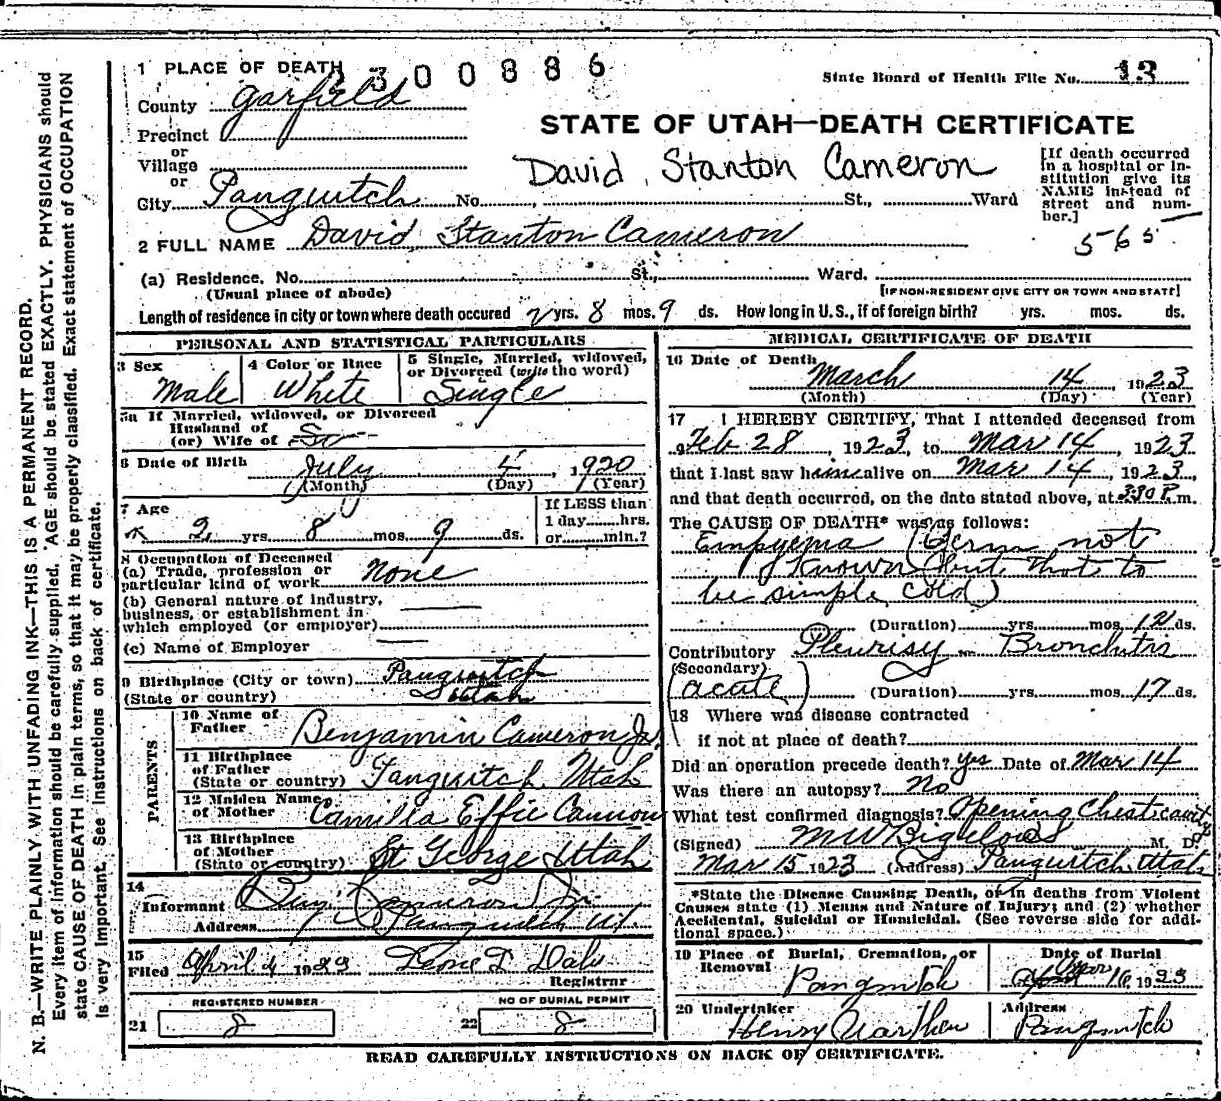 1 PLACE OF DEATH 2300886
State Board of Health File No. 13
County Garfield
STATE OF UTAH—DEATH CERTIFICATE
Precinct
or
Village
or
David Stanton Cameron
[If death occurred in a hospital or institution give its NAME instead of street and number.]
City Panguitch No. St., Ward
565
2 FULL NAME David Stanton Cameron
(a) Residence, No. St., Ward.
(Usual place of abode)
[IF NON-RESIDENT GIVE CITY OR TOWN AND STATE]
Length of residence in city or town where death occured 2 yrs. 8 mos. 9 ds. How long in U.S., if of foreign birth? yrs. mos. ds.
PERSONAL AND STATISTICAL PARTICULARS
3 Sex Male
4 Color or Race White
5 Single, Married, widowed, or Divorced (write the word) Single
5a If Married, widowed, or Divorced
Husband of
(or) Wife of
6 Date of Birth July 4, 1920
(Month) (Day) (Year)
7 Age 2 yrs. 8 mos. 9 ds.
If LESS than
1 day hrs.
or min.?
8 Occupation of Deceased
(a) Trade, profession or
particular kind of work None
(b) General nature of industry,
business, or establishment in
which employed (or employer)
(c) Name of Employer
9 Birthplace (City or town) Panguitch
(State or country) Utah
PARENTS
10 Name of
Father Benjamin Cameron Jr.
11 Birthplace
of Father
(State or country) Panguitch Utah
12 Maiden Name
of Mother Camilla Effie Cannon
13 Birthplace
of Mother
(State or country) St George Utah
14
Informant Benj Cameron Jr
Address Panguitch Ut
15
Filed April 4 1923
Registrar
REGISTERED NUMBER
21 8
NO OF BURIAL PERMIT
22 8
MEDICAL CERTIFICATE OF DEATH
16 Date of Death
March 14, 1923
(Month) (Day) (Year)
17 I HEREBY CERTIFY, That I attended deceased from
Feb 28, 1923, to Mar 14, 1923
that I last saw him alive on Mar 14, 1923,
and that death occurred, on the date stated above, at 3:30 P.m.
The CAUSE OF DEATH* was as follows:
Empyema (Germ not
known but that to
be simple cold)
(Duration) yrs. mos. 12 ds.
Contributory Pleurisy - Bronchitis
(Secondary)
(acute) (Duration) yrs. mos. 17 ds.
18 Where was disease contracted
if not at place of death?
Did an operation precede death? yes Date of Mar 14
Was there an autopsy? No
What test confirmed diagnosis? Opening Chest cavity
(Signed) M W Bigelow M. D.
Mar 15 1923 (Address) Panguitch, Utah
*State the Disease Causing Death, or in deaths from Violent
Causes state (1) Means and Nature of Injury; and (2) whether
Accidental, Suicidal or Homicidal. (See reverse side for additional space.)
19 Place of Burial, Cremation, or
Removal Panguitch
Date of Burial
Mar 16, 1923
20 Undertaker
Henry
Address
Panguitch
READ CAREFULLY INSTRUCTIONS ON BACK OF CERTIFICATE.
N. B.—WRITE PLAINLY WITH UNFADING INK—THIS IS A PERMANENT RECORD.
Every item of information should be carefully supplied. AGE should be stated EXACTLY. PHYSICIANS should
state CAUSE OF DEATH in plain terms, so that it may be properly classified. Exact statement of OCCUPATION
is very important. See Instructions on back of certificate.